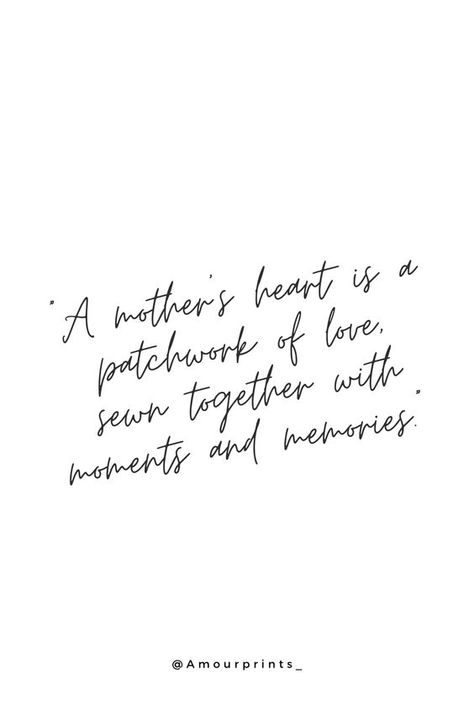 "A mother's heart is a
patchwork of love,
sewn together with
moments and memories."
@Amourprints_